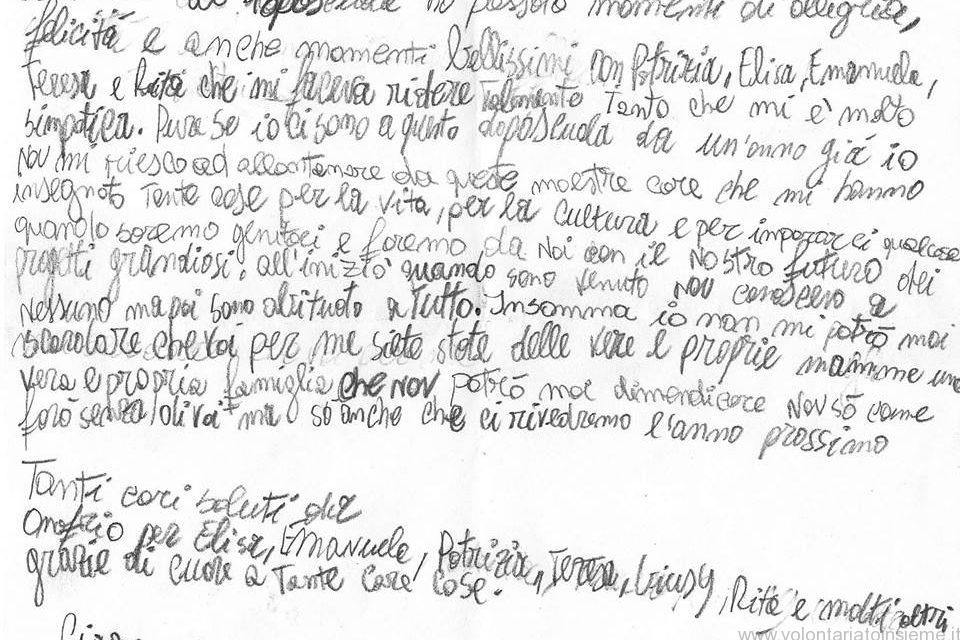 al doposcuola ho passato momenti di allegria,
felicità e anche momenti bellissimi con Patrizia, Elisa, Emanuela,
Teresa e Rita che mi faceva ridere talmente tanto che mi è molto
simpatica. Pura se io ci sono a questo doposcuola da un'anno già io
nov mi riesco ad allontanare da queste maestre care che mi hanno
insegnato tante cose per la vita, per la cultura e per impararci qualcosa
quando saremo genitori e faremo da noi con il nostro futuro dei
progetti grandiosi. all'inizio quando sono venuto nov conoscevo a
nessuno ma poi sono abituato a tutto. Insomma io non mi potrò mai
scordare che voi per me siete state delle vere e proprie mamme una
vera e propria famiglia che nov potrò mai dimendicare nov sò come
farò senza di voi ma so anche che ci rivedremo l'anno prossimo
Tanti cari saluti da
Onofrio per Elisa, Emanuela, Patrizia, Teresa, Giusy, Rita e molti altri
grazie di cuore a tante care cose.
Ciao
www.volontariatoinsieme.it